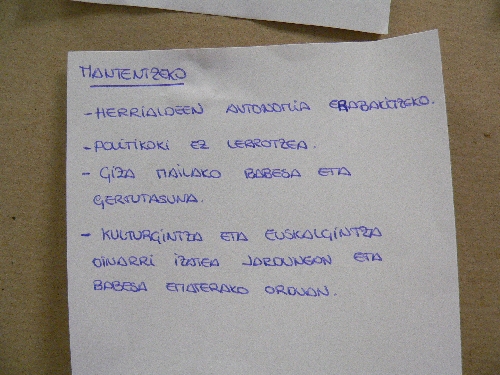 MANTENTZEKO
- HERRIALDEEN AUTONOMIA ERABAKITZEKO.
- POLITIKOKI EZ LERROTZEA.
- GIZA MAILAKO BABESA ETA
GERTUTASUNA.
- KULTURGINTZA ETA EUSKALGINTZA
OINARRI IZATEA JARDUNGON ETA
BABESA EMATERAKO ORDUAN.